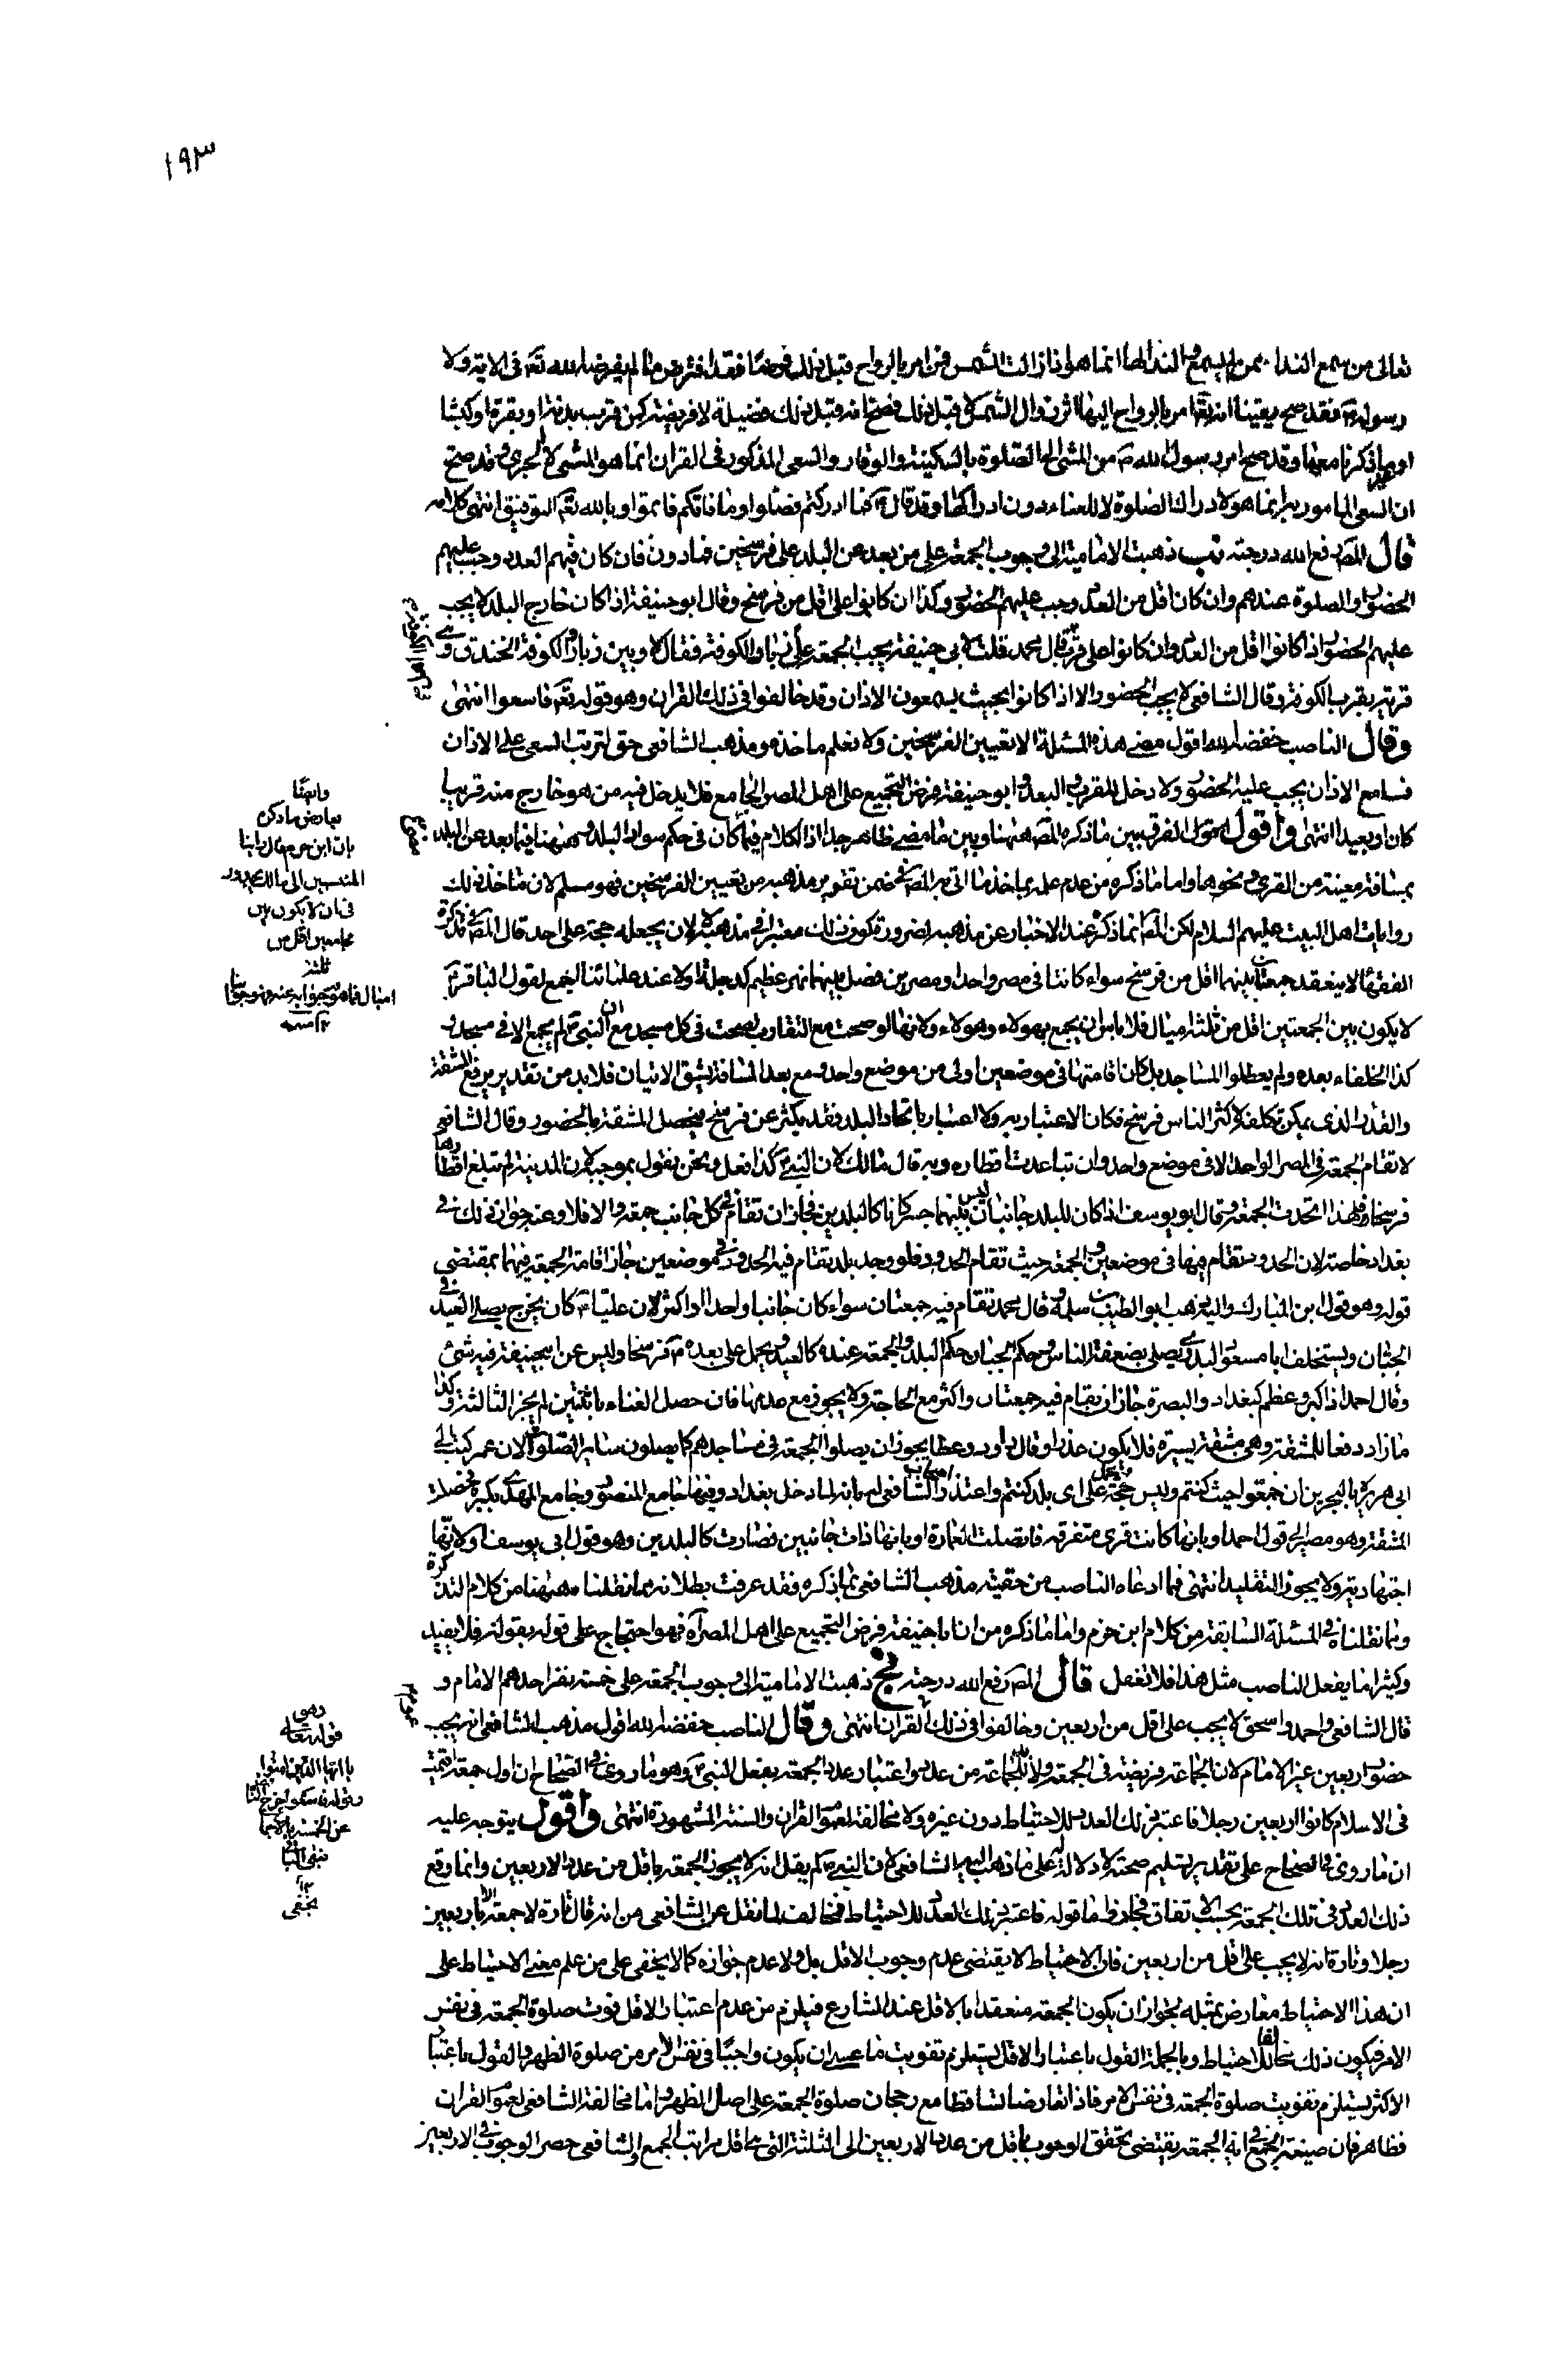 ١٩٣
تعالى من سمع النداء ممن لم يسمع والنداء لها انما هو اذا زالت الشمس فمن امر بالرواح قبل ذلك فرضا فقد افترض ما لم يفرضه الله تعَ فى الاية ولا
رسوله صَ فقد صح يقينا انه تعَ امر بالرواح اليها اثر زوال الشمس لا قبل ذلك فصح انه قبل ذلك فضيلة لا فريضة كمن قرب بدنة او بقرة او كبشا
او ما ذكرنا معها وقد صح امر رسول الله صَ من المشى الى الصلوة بالسكينة والوقار والسعى المذكور فى القران انما هو المشى لا الجرى وقد صح
ان السعى المامور به انما هو لادراك الصلوة لا للعناء دون ادراكها وقد قال عَ فما ادركتم فصلوا وما فاتكم فاتموا وبالله تعَ التوفيق انتهى كلامه
قال المصَ رفع الله درجته نب ذهبت الامامية الى وجوب الجمعة على من بعد عن البلد على فرسخين فما دون فان كان فيهم العدد وجب عليهم
الحضور او الصلوة عندهم وان كان اقل من العدد وجب عليهم الحضور وكذا ان كانوا على اقل من فرسخ وقال ابو حنيفة اذا كان خارج البلد لا يجب
عليهم الحضور اذا كانوا اقل من العدد وان كانوا على قرب قال محمد قلت لابى حنيفة يجب الجمعة على زبارا والكوفة فقال لا وبين زبارا والكوفة الخندق وهى
قرية بقرب الكوفة وقال الشافعى لا يجب الحضور الا اذا كانوا بحيث يسمعون الاذان وقد خالفوا فى ذلك القران وهو قوله تعَ فاسعوا انتهى
وقال الناصب خفضه الله اقول مضى هذه المسئلة الا تعيين الفرسخين ولا نعلم ماخذه ومذهب الشافعى حق لترتب السعى على الاذان
فسامع الاذان يجب عليه الحضور ولا دخل للقرب والبعد وابو حنيفة فرض التجميع على اهل المصر الجامع فلا يدخل فيه من هو خارج منه قريبا
كان او بعيدا انتهى واقول الفرق بين ما ذكره المصَ ههنا وبين ما مضى ظاهر جدا اذ الكلام فيما كان فى حكم سواد البلد وههنا فيما بعد عن البلد
بمسافة معينة من القرى ونحوها واما ما ذكره من عدم علمه بماخذ ما اتى به المصَ فى ضمن تقرير مذهبه من تعيين الفرسخين فهو مسلم لان ماخذ ذلك
روايات اهل البيت عليهم السلام لكن المصَ انما ذكره عند الاخبار عن مذهبه لضرورة كون ذلك معتبرا فى مذهبه لا لان يجعله حجة على احد قال المصَ فى تذكرة
الفقهاء لا ينعقد جمعتان بينهما اقل من فرسخ سواء كانتا فى مصر واحد او مصرين فصل بينهما نهر عظيم كدجلة او لا عند علمائنا اجمع لقول الباقر عَ
لا يكون بين الجمعتين اقل من ثلثة اميال فلا باس ان يجمع بهولاء وهولاء ولانها لو صحت مع التقارب لصحت فى كل مسجد مع ان النبى عَ لم يجمع الا فى مسجده و
كذا الخلفاء بعده ولم يعطلوا المساجد بل كان اقامتها فى موضعين اولى من موضع واحد ومع بعد المسافة يشق الاتيان فلا بد من تقدير يرفع المشقة
والقدر الذى يمكن تكلفه لاكثر الناس فرسخ فكان الاعتبار به ولا اعتبار باتحاد البلد فقد يكثر عن فرسخ فيحصل المشقة بالحضور وقال الشافعى
لا تقام الجمعة فى المصر الواحد الا فى موضع واحد وان تباعدت اقطاره وبه قال مالك لان النبى عَ كذا فعل ونحن نقول بموجبه لان المدينة لم تبلغ اقطارها
فرسخا فلهذا اتحدت الجمعة وقال ابو يوسف اذا كان للبلد جانبان ليس بينهما جسر كانا كالبلدين فجاز ان تقام فى كل جانب جمعة والا فلا وعنه جواز ذلك فى
بغداد خاصة لان الحدود تقام فيها فى موضعين والجمعة حيث تقام الحدود فلو وجد بلد تقام فيه الحدود فى موضعين جاز اقامة الجمعة فيهما بمقتضى
قوله وهو قول بن المبارك واليه ذهب ابو الطيب بن سلمة وقال محمد تقام فيه جمعتان سواء كان جانبا واحدا او اكثر لان عليا عَ كان يخرج يصلى العيد فى
الجبان ويستخلف ابا مسعود البدرى يصلى بضعفة الناس وحكم الجبان حكم البلد والجمعة عنده كالعيد ويحمل على بعده عَ فرسخا وليس عن ابى حنيفة فيه شئ
وقال احمد اذا كبر وعظم كبغداد والبصرة جاز ان يقام فيه جمعتان واكثر مع الحاجة ولا يجوز مع عدمها فان حصل الغناء باثنتين لم يجز الثالثة وكذا
ما زاد دفعا للمشقة وهى مشقة يسيرة فلا يكون عذرا وقال داود وعطا يجوز ان يصلوا الجمعة فى مساجدهم كما يصلون سائر الصلوات لان عمر كتب الى
ابى هريرة بالبحرين ان جمعوا حيث كنتم وليس حجة على اى بلد كنتم واعتذر اصحاب الشافعى له بانه لما دخل بغداد وفيها جامع المنصور وجامع المهدى بكثرة فحصلت
المشقة وهو مصير الى قول احمد او بانها كانت قرى متفرقة فاتصلت العمارة او بانها ذات جانبين فصارت كالبلدين وهو قول ابى يوسف او لانها
اجتهادية ولا يجوز التقليد انتهى فما ادعاه الناصب من حقية مذهب الشافعى بما ذكره فقد عرفت بطلانه بما نقلناه ههنا من كلام التذكرة
وبما نقلناه فى المسئلة السابقة من كلام ابن حزم واما ما ذكره من ان ابا حنيفة فرض التجميع على اهل المصر آه فهو احتجاج على قوله بقوله فلا يفيد
وكثيرا ما يفعل الناصب مثل هذا فلا تغفل قال المصَ رفع الله درجته نج ذهبت الامامية الى وجوب الجمعة على خمسة نفر احدهم الامام و
قال الشافعى واحمد واسحق لا يجب على اقل من اربعين وخالفوا فى ذلك القران انتهى وقال الناصب خفضه الله اقول مذهب الشافعى انه يجب
حضور اربعين غير الامام لان الجماعة فريضة فى الجمعة ولا بد للجماعة من عدد واعتبار عدد الجمعة بفعل النبى عَ وهو ما روى فى الصحاح ان اول جمعة اقيمت
فى الاسلام كانوا اربعين رجلا فاعتبر ذلك العدد للاحتياط دون غيره ولا مخالفة لعموم القران والسنة المشهورة انتهى واقول يتوجه عليه
ان ما روى فى الصحاح على تقدير تسليم صحته لا دلالة له على ما ذهب اليه الشافعى لان النبى عَ لم يقل انه لا يجوز الجمعة باقل من عدد الاربعين وانما وقع
ذلك العدد فى تلك الجمعة بحسب الاتفاق واما قوله فاعتبر ذلك العدد للاحتياط فمخالف لما نقل عن الشافعى من انه قال تارة لا جمعة الا باربعين
رجلا وتارة انه لا يجب على اقل من اربعين فان الاحتياط لا يقتضى عدم وجوب الاقل بل ولا عدم جوازه كما لا يخفى على من علم معنى الاحتياط على
ان هذا الاحتياط معارض بمثله لجواز ان يكون الجمعة منعقدا بالاقل عند الشارع فيلزم من عدم اعتبار الاقل فوت صلوة الجمعة فى نفس
الامر فيكون ذلك مخالفا للاحتياط وبالجملة القول باعتبار الاقل يستلزم تفويت ما عسى ان يكون واجبا فى نفس الامر من صلوة الظهر والقول باعتبار
الاكثر يستلزم تفويت صلوة الجمعة فى نفس الامر فاذا تعارضا تساقطا مع رجحان صلوة الجمعة على اصل الظهر واما مخالفة الشافعى لعموم القران
فظاهر فان صيغة الجمع فى اية الجمعة يقتضى تحقق الوجوب باقل من عدد الاربعين الى الثلثة التى هى اقل مراتب الجمع والشافعى حصر الوجوب فى الاربعين
وايضا
يعارض ما ذكره
بان ابن حزم قال راينا
المنتسبين الى مالك
فى ان لا يكون بين
جامعين اقل من
ثلثة
اميال فما هو جوابه عنه فهو جوابنا
١٢ منه
وهو
قوله تعالى
يا ايها الذين امنوا
عن الخمسة بالاجماع
فبقى الباقى
١٢
نجفى